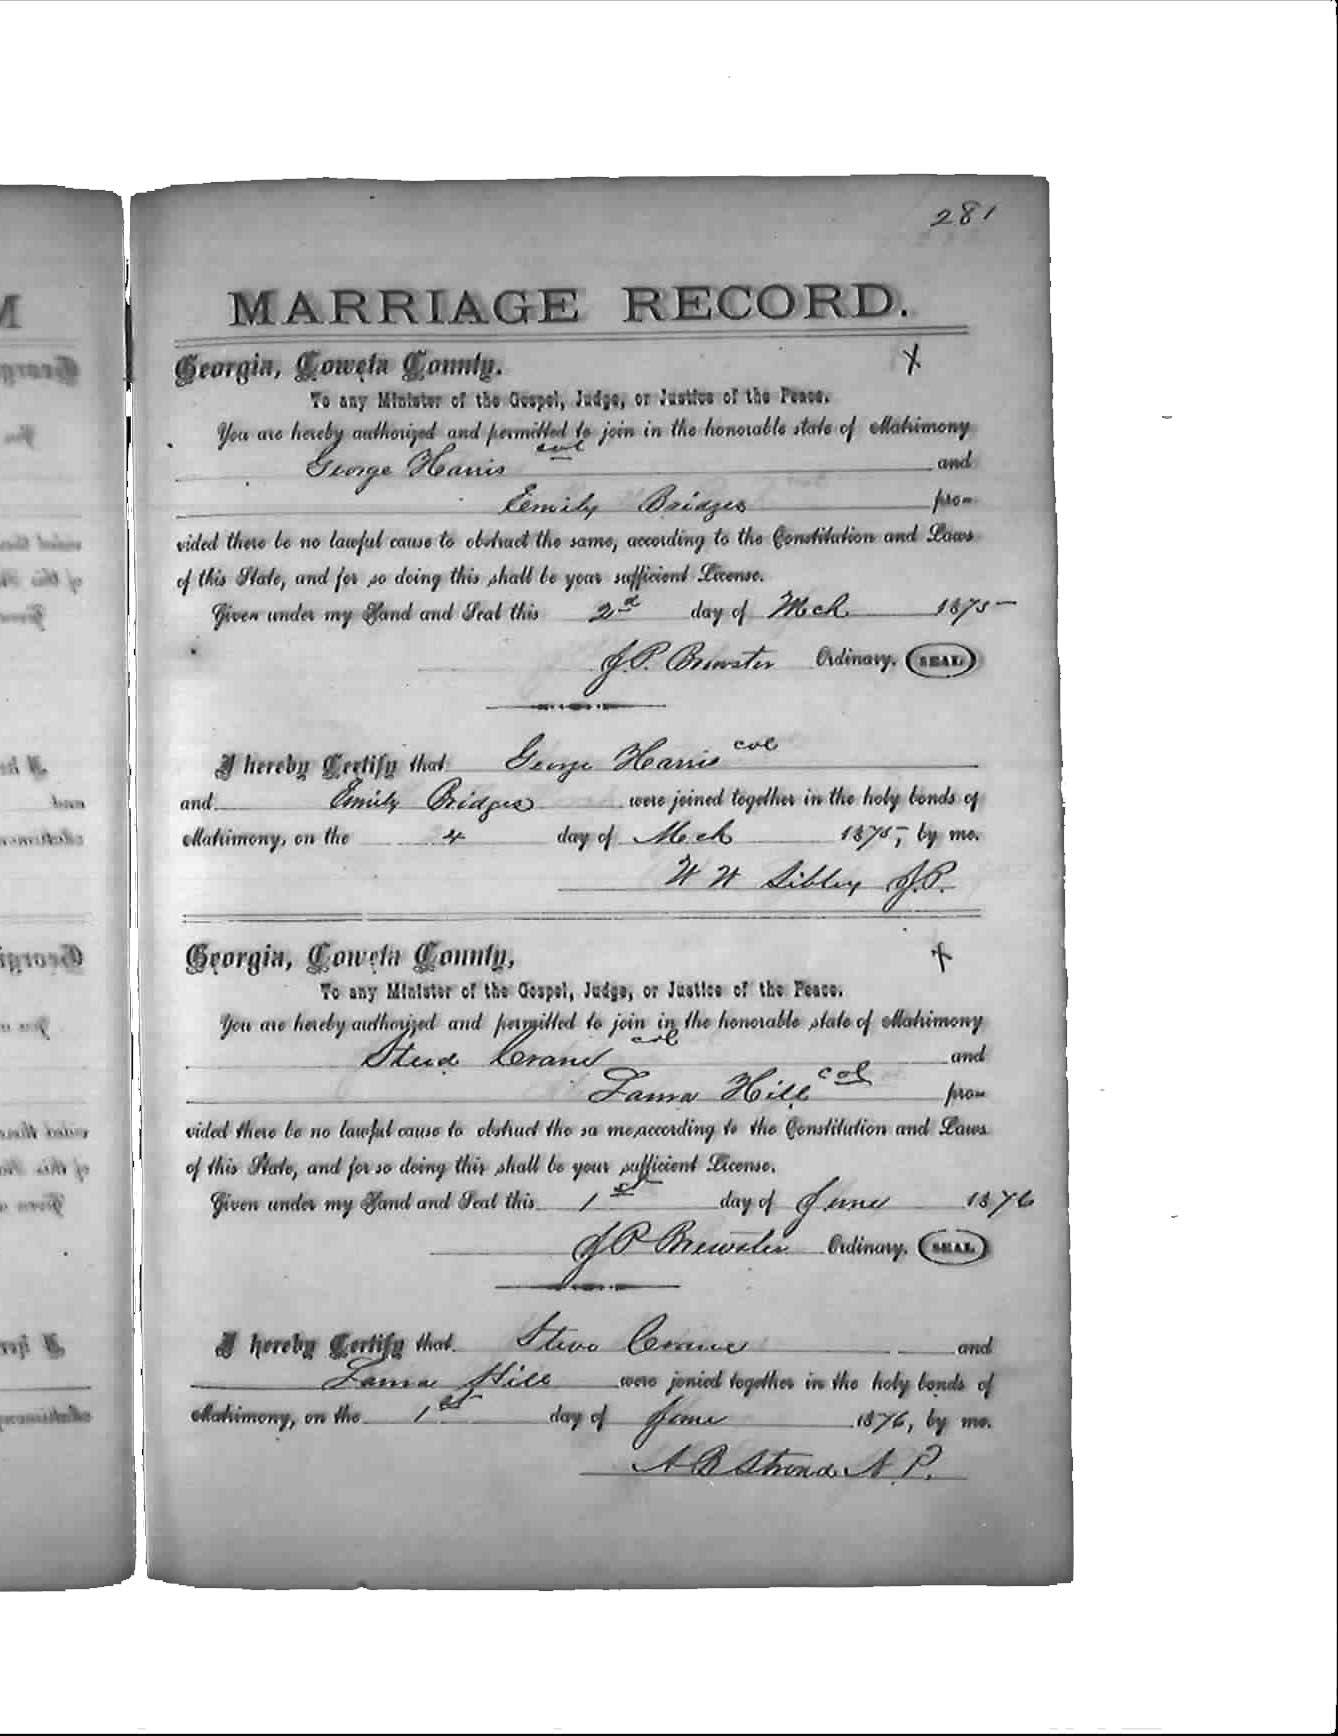 281
MARRIAGE RECORD.
Georgia, Coweta County.
To any Minister of the Gospel, Judge, or Justice of the Peace.
You are hereby authorized and permitted to join in the honorable state of Matrimony
George Harris col and
Emily Bridges pro-
vided there be no lawful cause to obstruct the same, according to the Constitution and Laws
of this State, and for so doing this shall be your sufficient License.
Given under my Hand and Seal this 2d day of Mch 1875
J.P. Brewster Ordinary. SEAL
I hereby Certify that George Harris col
and Emily Bridges were joined together in the holy bonds of
Matrimony, on the 4 day of Mch 1875, by me.
W W Sibley J.P.
Georgia, Coweta County,
To any Minister of the Gospel, Judge, or Justice of the Peace.
You are hereby authorized and permitted to join in the honorable state of Matrimony
Crane col and
Hill col pro-
vided there be no lawful cause to obstruct the sa me,according to the Constitution and Laws
of this State, and for so doing this shall be your sufficient License.
Given under my Hand and Seal this 1st day of June 1876
J P Brewster Ordinary. SEAL
I hereby Certify that Steve Crane and
Hill were jonied together in the holy bonds of
Matrimony, on the 1st day of June 1876, by me.
A B N.P.